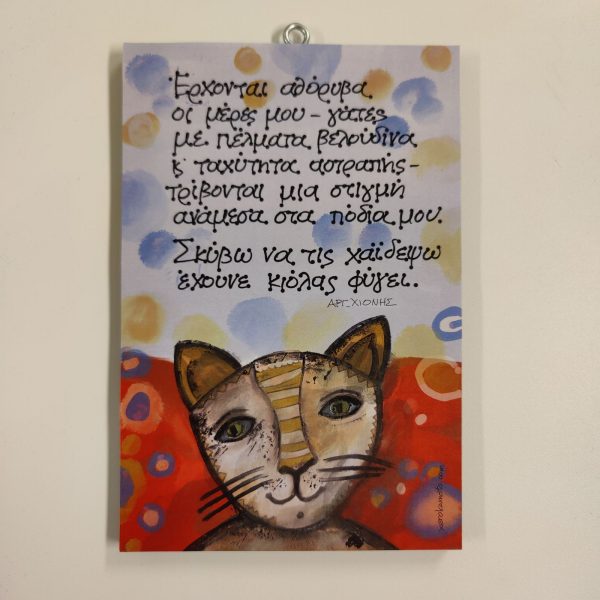 Έρχονται αθόρυβα
οι μέρες μου - γάτες
με πέλματα βελούδινα
κ' ταχύτητα αστραπής -
τρίβονται μια στιγμή
ανάμεσα στα πόδια μου.
Σκύβω να τις χαϊδέψω
έχουνε κιόλας φύγει..
ΑΡΓ. ΧΙΟΝΗΣ